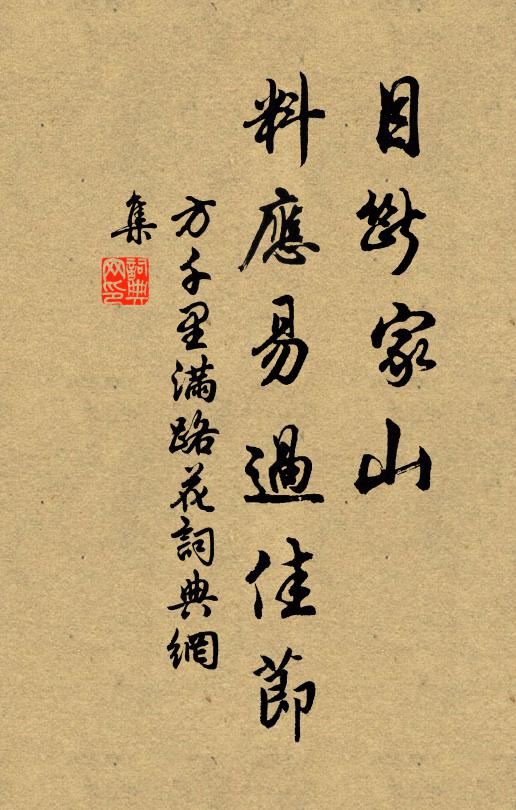 目斷家山
料應易過佳節
方千里滿路花詞典網
集
詞典網印